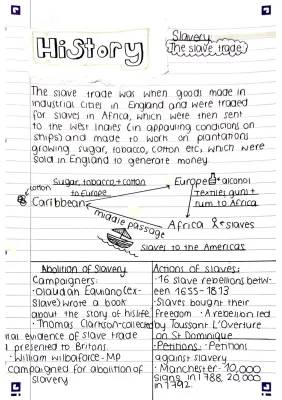 History
Slavery
(The slave trade)
The slave trade was when goods made in
industrial cities in England and were traded
for slaves in Africa, which were then sent
to the West Indies (in appauling conditions on
ships) and made to work on plantations
growing sugar, tobacco, cotton etc, which were
sold in England to generate money.
Sugar, tobacco + cotton
to Europe
cotton
Caribbean
Europe + alconol
Textiles guns +
rum to Africa
middle passage
Africa & slaves
slaves to the Americas
Abolition of Slavery
Campaigners:
• Olaudah Equiano (ex-
Slave) wrote a book
about the story of his life.
• Thomas Clarkson - collected
al evidence of slave trade
presented to Britons.
• William Wilbaforce - MP
campaigned for abolition of
slavery
Actions of slaves:
• 16 slave rebellions betw-
een 1655 - 1813
• Slaves bought their
freedom • A rebellion led
by Toussant L'Overture
on St Dominique
• Petitions: Petitions
against slavery
• Manchester - 10,000
signs in 1788, 20,000
in 1792